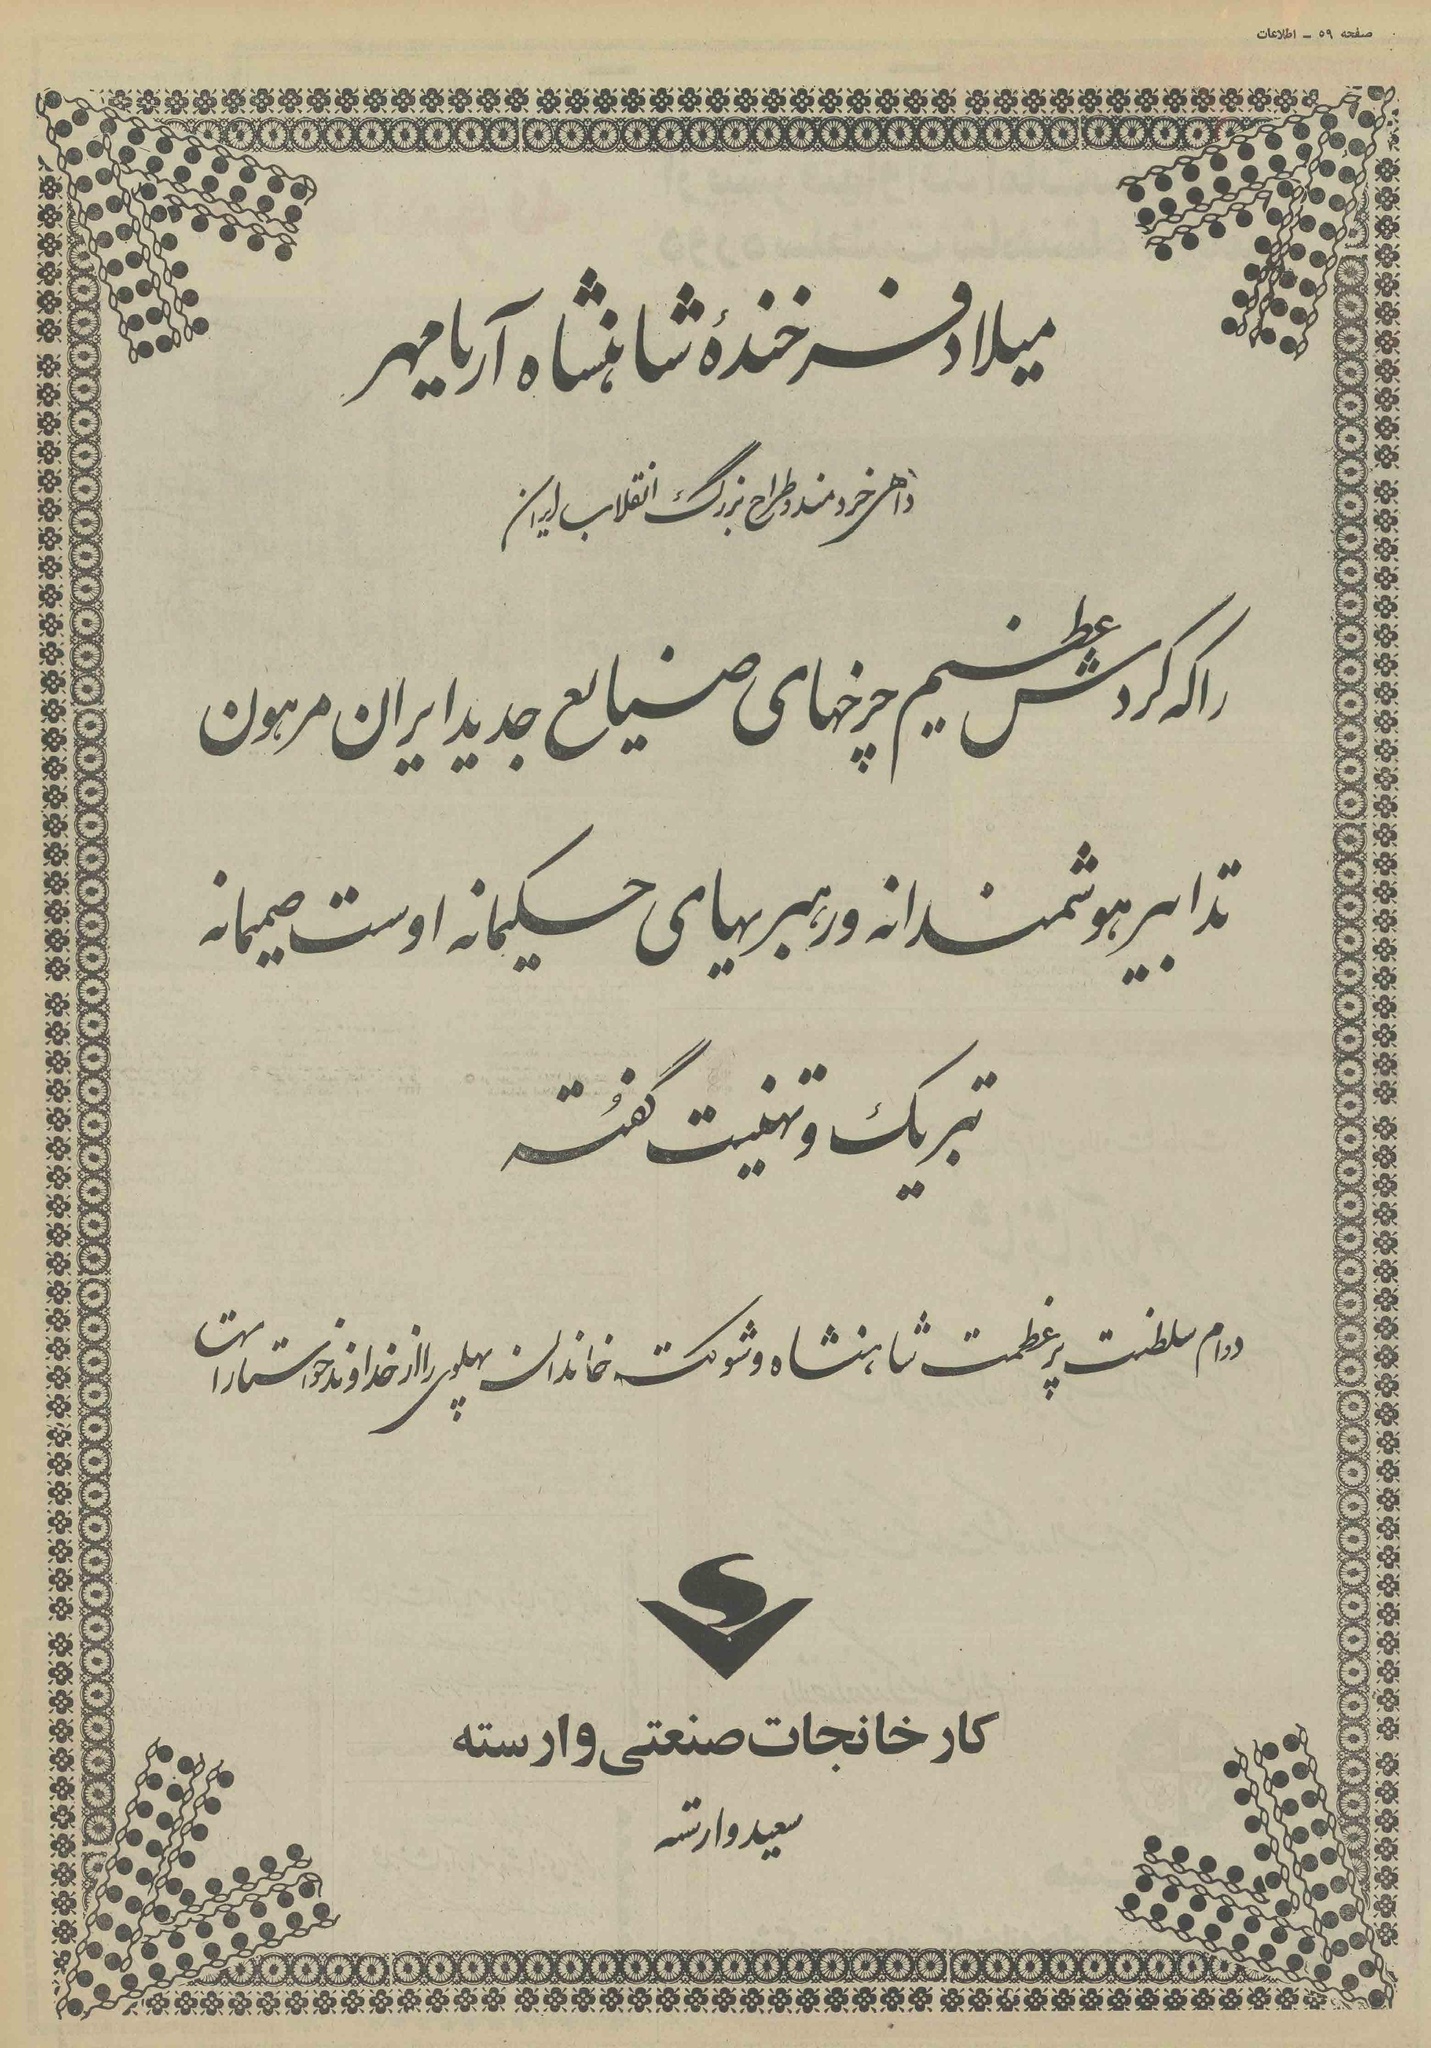 صفحه ۵۹ ــ اطلاعات
میلاد فرخندهٔ شاهنشاه آریامهر
داهی خردمند و طراح بزرگ انقلاب ایران
را که گردش عظیم چرخهای صنایع جدید ایران مرهون
تدابیر هوشمندانه و رهبریهای حکیمانه اوست صمیمانه
تبریک و تهنیت گفته
دوام سلطنت پر عظمت شاهنشاه و شوکت خاندان پهلوی را از خداوند خواستار است
کارخانجات صنعتی وارسته
سعید وارسته